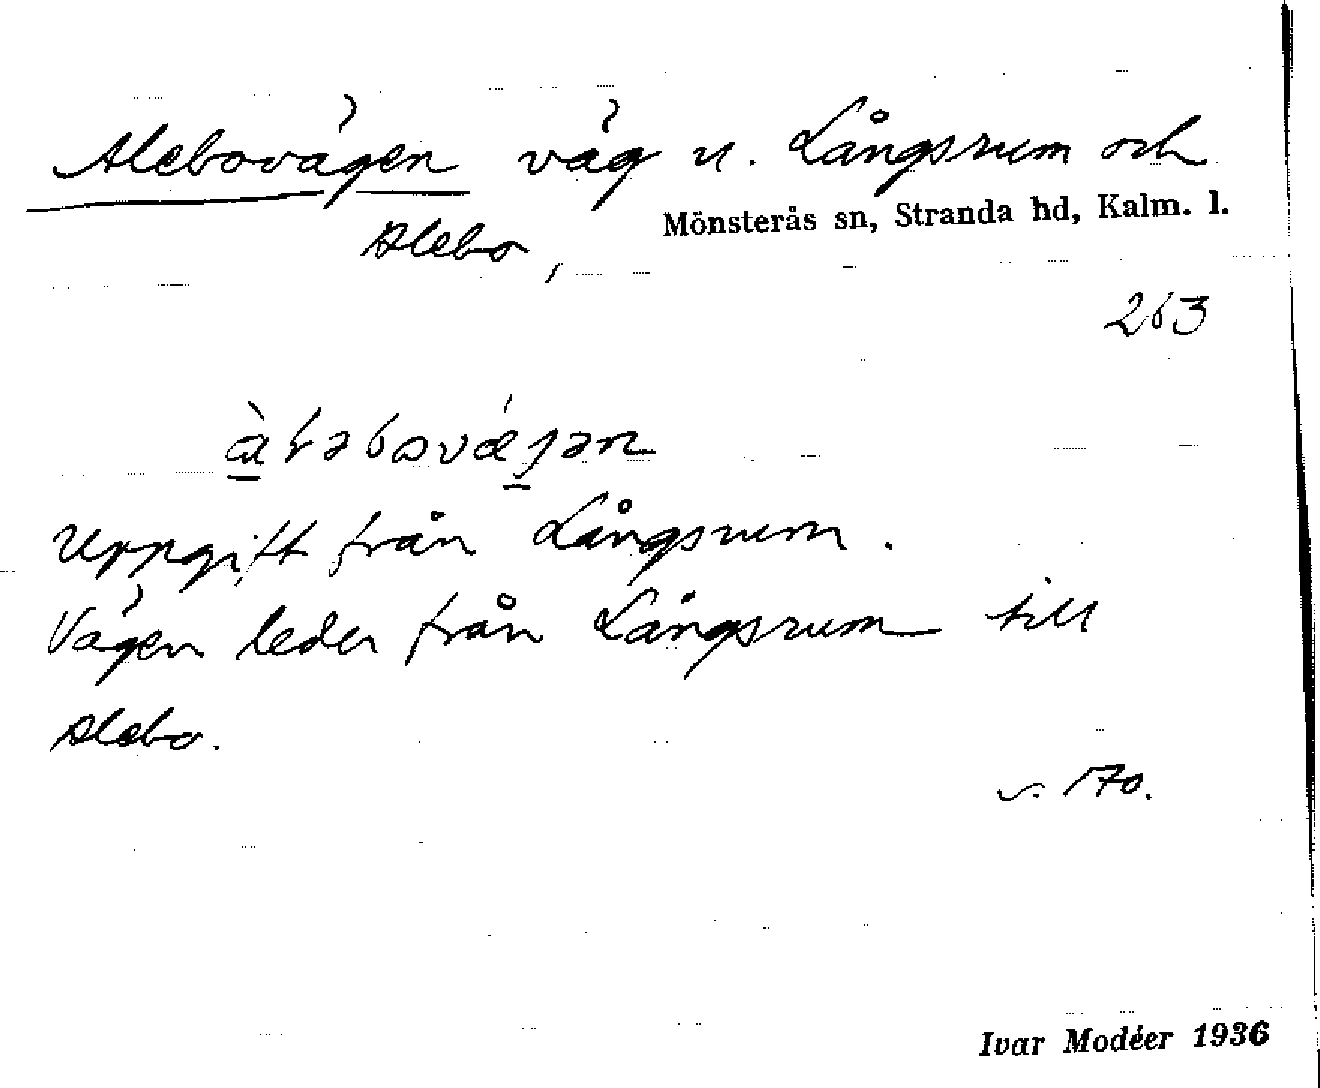 Alebovägen väg u. Långsrum och
Alebo,
Mönsterås sn, Stranda hd, Kalm. l.
263
Uppgift från Långsrum.
Vägen leder från Långsrum till
Alebo.
s. 170.
Ivar Modéer 1936